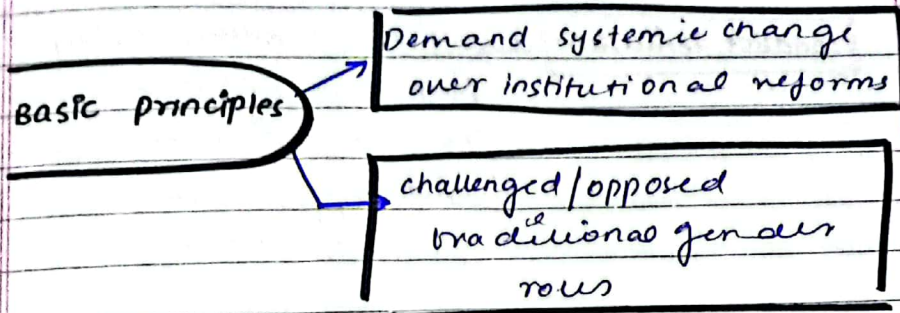 Basic principles
Demand systemic change
over institutional reforms
challenged/opposed
traditional gender
roles